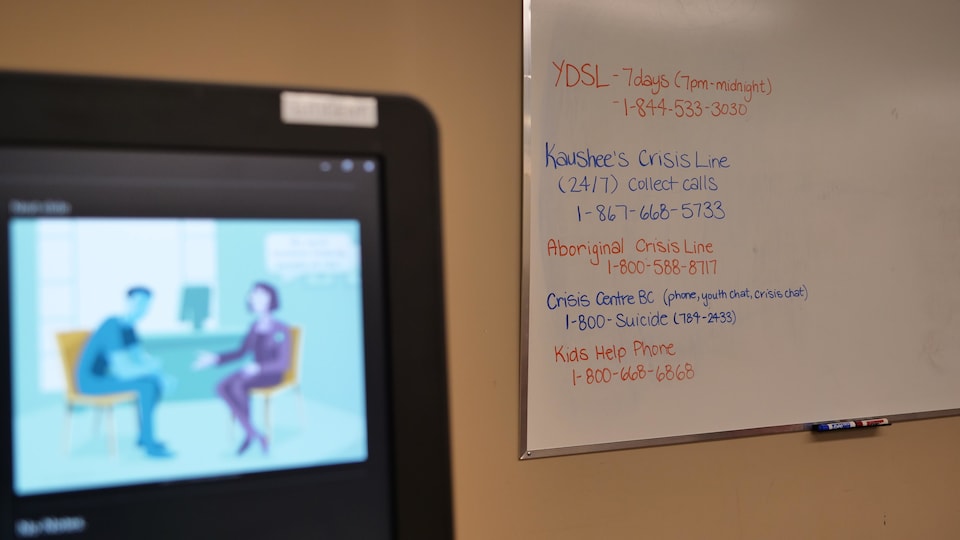 YDSL - 7days (7pm-midnight)
- 1-844-533-3030
Kaushee's Crisis Line
(24/7) Collect calls
1-867-668-5733
Aboriginal Crisis Line
1-800-588-8717
Crisis Centre BC (phone, youth chat, crisis chat)
1-800-Suicide (784-2433)
Kids Help Phone
1-800-668-6868
My Notes